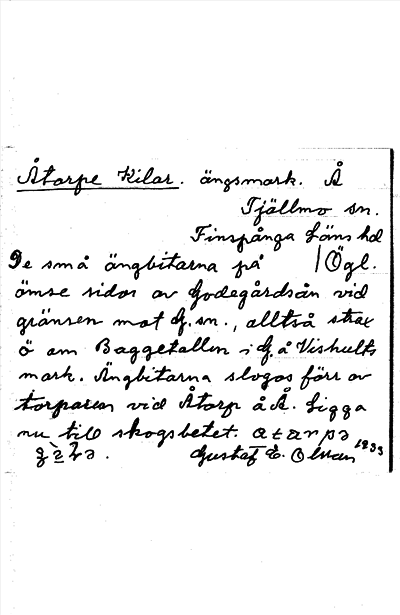 Åtorpe Kilar. ängsmark. Å
Tjällmo sn.
Finspånga Läns hd
De små ängbitarna på Ögl.
ömse sidor av Godegårdsån vid
gränsen mot G. sn., alltså strax
ö om Baggetallen i G. å Vishults
mark. Ängbitarna slogos förr av
torparen vid Åtorp å Å. Ligga
nu till skogsbetet.
Gustaf E. Olsson 1933